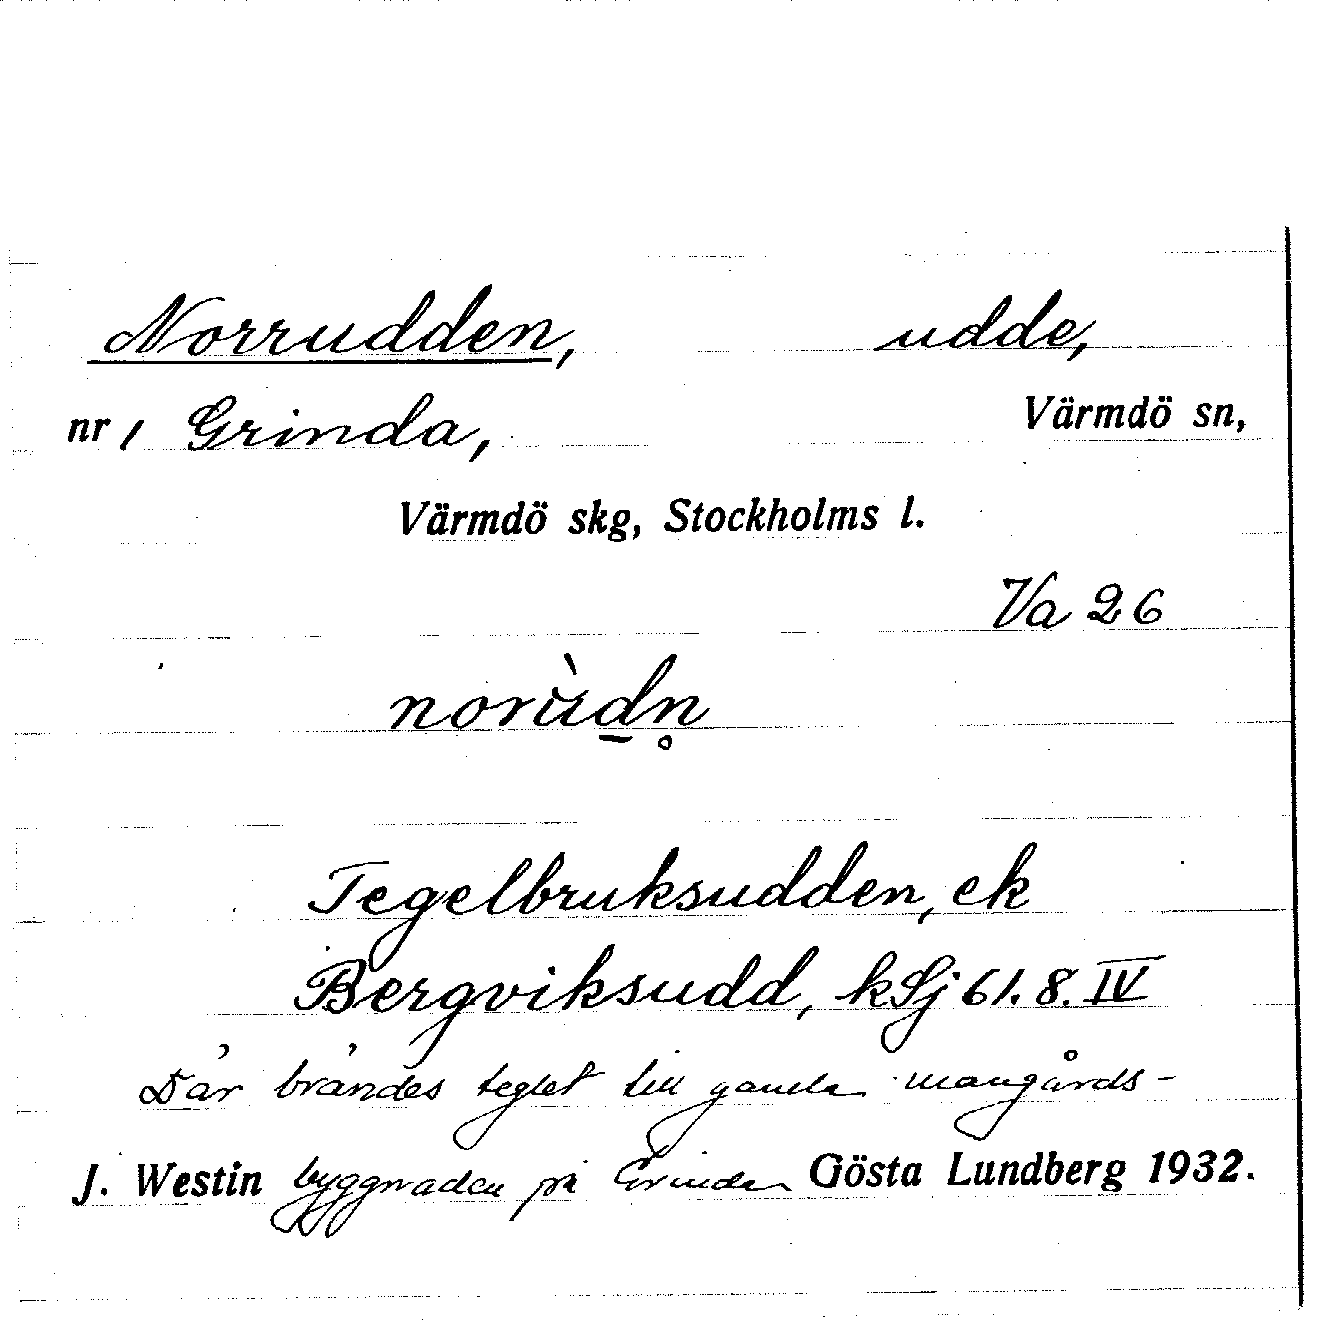 Norrudden, udde,
nr 1 Grinda, Värmdö sn,
Värmdö skg, Stockholms l.
Va 26
norùd̲n̥
Tegelbruksudden, ek
Bergviksudd, kSj 61.8.IV
Där brändes teglet till gamla mangårds-
J. Westin byggnaden på Grinda Gösta Lundberg 1932.